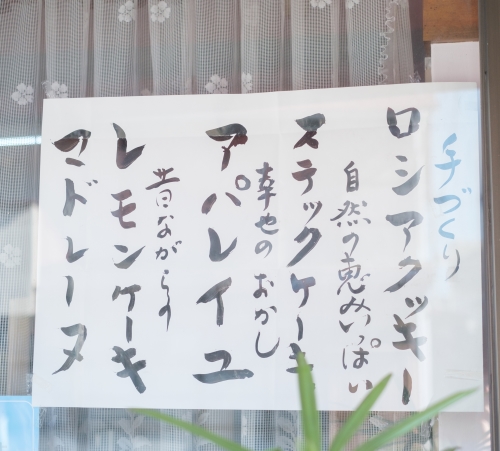 手づくり
ロシアクッキー
自然の恵みいっぱい
ステックケーキ
幸也のおかし
アパレイユ
昔ながらの
レモンケーキ
マドレーヌ